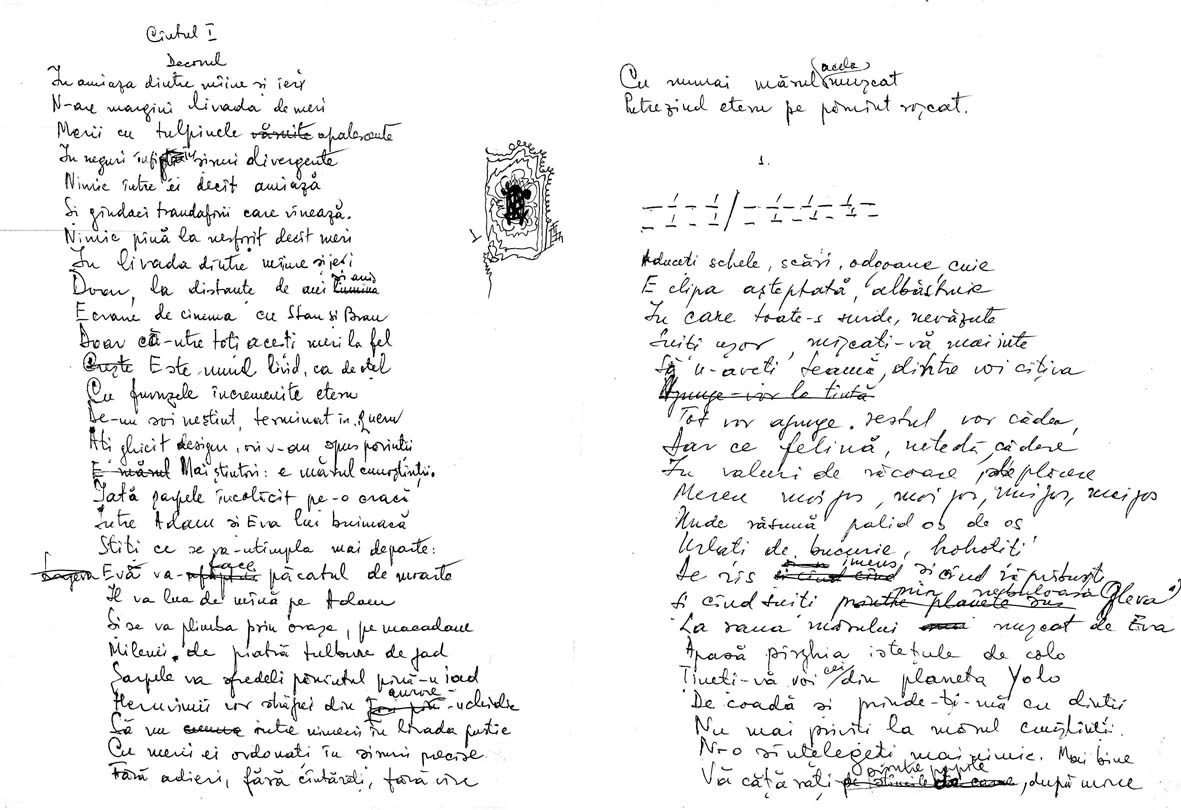 Cîntul I
Decorul
In amiaza dintre mîine și ieri
N-are margini livada de meri
Merii cu tulpinele opalescente
In neguri înfipți în șiruri divergente
Nimic între ei decît amiază
Si gîndaci trandafirii care vînează.
Nimic pînă la nesfîrșit decît meri
In livada dintre mîine și ieri
Doar, la distante de ani și ani
Ecrane de cinema cu Stan și Bran
Doar că-ntre toți acesti meri la fel
Este unul livid, ca de oțel
Cu frunzele încremenite etern
De-un soi neștiut, terminat în
Ati ghicit desigur, ori v-au spus părinții
Mai știutori: e mărul cunoștinții.
Iată șarpele încolăcit pe-o cracă
Intre Adam si Eva lui buimacă
Stiti ce se va-ntîmpla mai departe:
Eva va face păcatul de moarte
Il va lua de mînă pe Adam
Si se va plimba prin orașe, pe macadam
Milenii, de piatră tulbure de jad
Sarpele va sfredeli pămîntul pînă-n iad
Heruvimii vor străjui din aurore
Să nu intre nimeni în livada pustie
Cu merii ei ordonati în șiruri precise
Fără adieri, fără cîntări, fără vise
Cu numai mărul acela muscat
Putrezind etern pe pămînt roșcat.
1.
Aduceti schele, scări, odgoane cuie
E clipa așteptată, albăstruie
In care toate-s surde, nevăzute
Suiți ușor, mișcati-vă mai iute
Să n-aveti teamă, dintre voi cîțiva
Tot vor ajunge. restul vor cădea,
Dar ce felină, netedă, cădere
In valuri de răcoare, de plăcere
Mereu mai jos, mai jos, mai jos, mai jos
Unde răsună palid os de os
Urlati de bucurie, hohotiți
De rîs imens și cînd vă prăbușiți
Si cînd suiti prin nebuloasa (Gleva)
La rana mărului muzcat de Eva
Apasă pîrghia istețule de colo
Tineti-vă voi cei din planeta Yolo
De coadă si prinde-ți-mă cu dinții
Nu mai priviti la mărul cunoștinții.
N-o să ințelegeti mai nimic. Mai bine
Vă cățărați printre popice, după mine